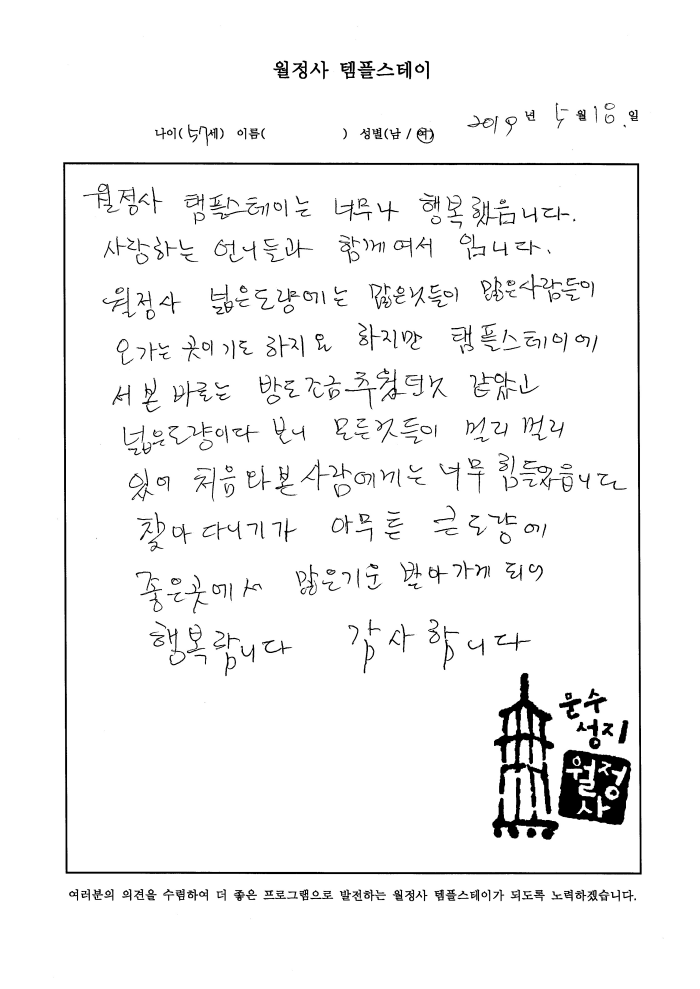 월정사 템플스테이
나이(57세) 이름( ) 성별(남 / 여) 2019년 5월 18.일
월정사 탬플스테이는 너무나 행복했읍니다.
사랑하는 언니들과 함께여서 입니다.
월정사 넓은도량에는 많은것들이 많은사람들이
오가는 곳이기도 하지요 하지만 탬플스테이에
서 본 바로는 방도조금 추웠던것 같았고
넓은도량이다 보니 모든것들이 멀리 멀리
있어 처음 와본사람에게는 너무 힘들었읍니다
찾아 다니기가 아무튼 큰도량에
좋은곳에서 많은기운 받아가게 되어
행복합니다 감사합니다
문수
성지
월정
사
여러분의 의견을 수렴하여 더 좋은 프로그램으로 발전하는 월정사 템플스테이가 되도록 노력하겠습니다.